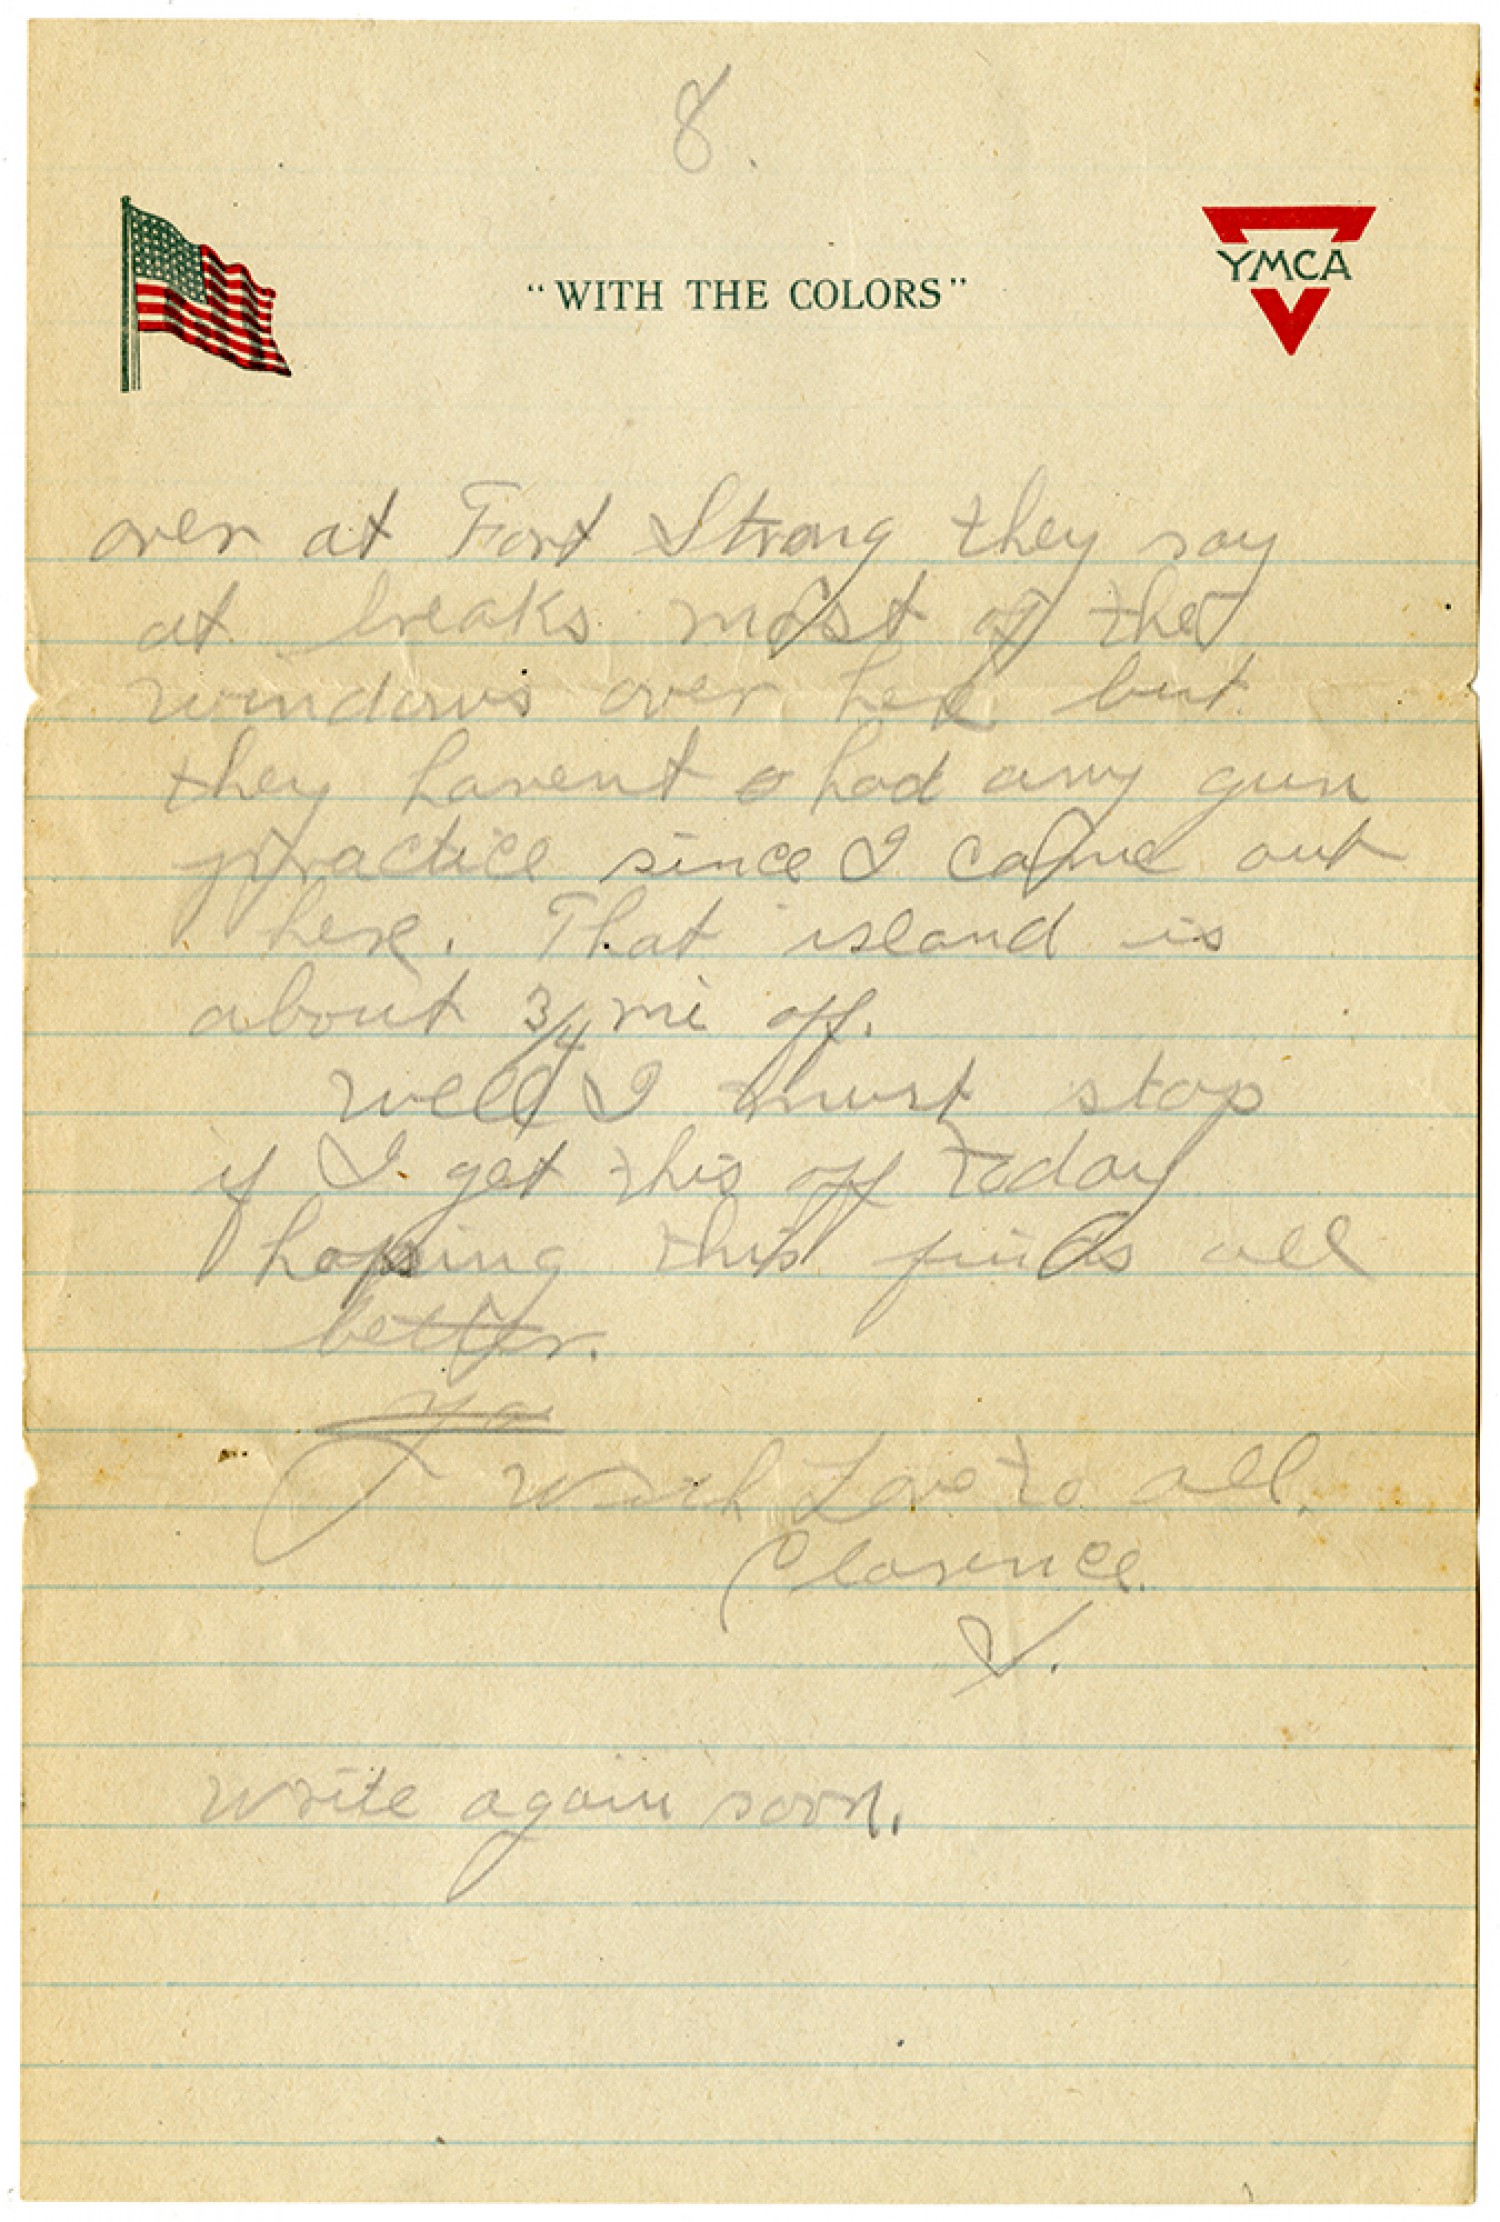 8.
"WITH THE COLORS"
YMCA
over at Fort Strong they say
at breaks most of the
windows over here but
they havent had any gun
practice since I came out
here. That island is
about 3/4 mi off.
Well I must stop
if I get this off today
hoping this finds all
better.
With Love to all.
Clarence.
write again soon.